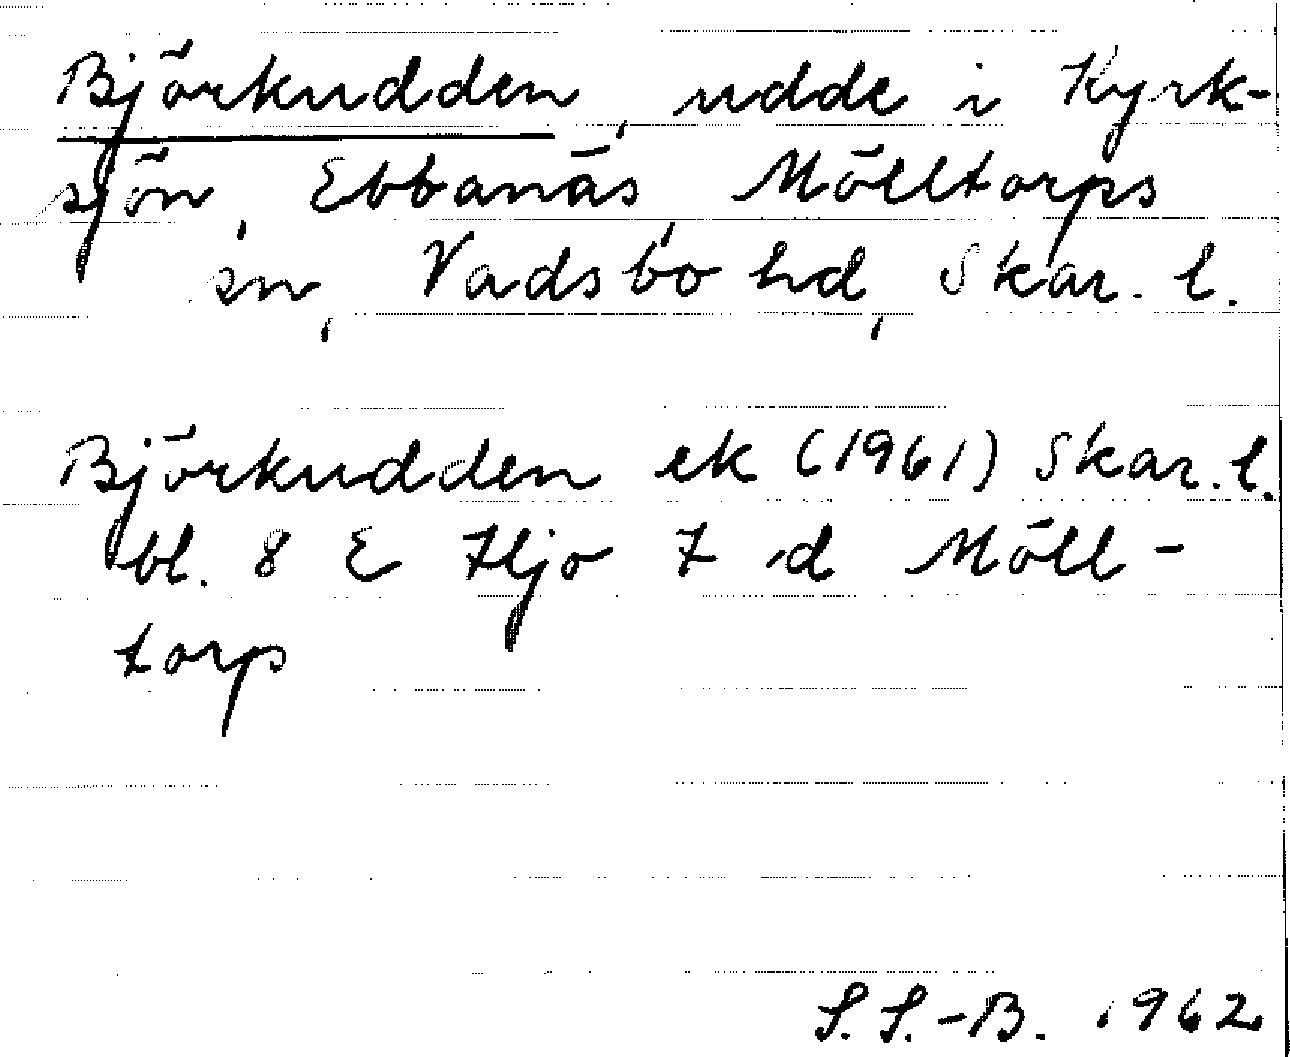 Björkudden, udde i Kyrk-
sjön, Ebbanäs, Mölltorps
sn, Vadsbo hd, Skar. l.
Björkudden ek (1961) Skar. l.
bl. 8 E Hjo 7 d Möll-
torp
S. S.-B. 1962